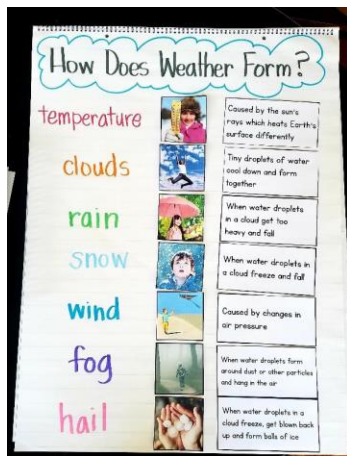 How Does Weather Form?
temperature
Caused by the sun's
rays which heats Earth's
surface differently
clouds
Tiny droplets of water
cool down and form
together
rain
When water droplets
in a cloud get too
heavy and fall
snow
When water droplets in
a cloud freeze and fall
wind
Caused by changes in
air pressure
fog
When water droplets form
around dust or other particles
and hang in the air
hail
When water droplets in a
cloud freeze, get blown back
up and form balls of ice